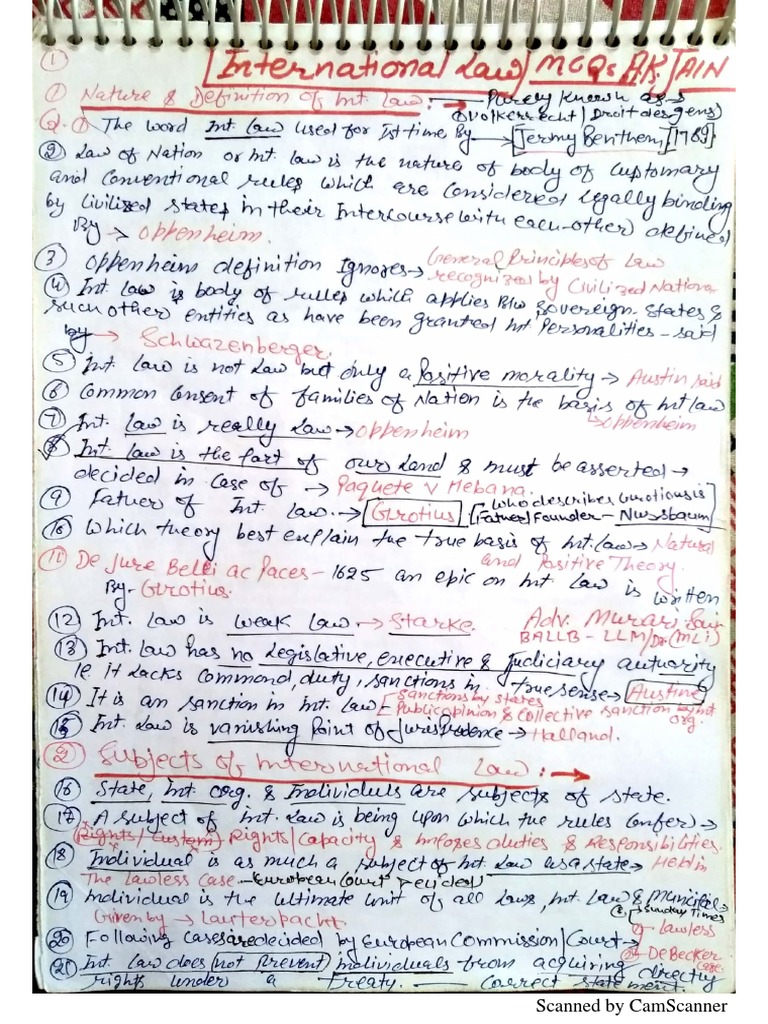 ①
International Law MCQs A.K. JAIN
① Nature & Definition of Int. Law: → Purely Known as →
① Volkerrecht / Droit des gens)
Q. ① The word Int Law used for Ist time By → Jermy Benthem [1789]
② Law of Nation or Int. law is the nature of body of Customary
and Conventional rules which are Considered legally binding
by Civilized states in their Intercourse with each-other defined
By → Oppenheim.
③ Oppenheim definition Ignores → General Principles of Law
recognized by Civilized Nations
④ Int Law is body of rules which applies B/w Sovereign States &
such other entities as have been granted Int Personalities - said
by → Schwazenberger.
⑤ Int. Law is not Law but only a Positive morality → Austin said
⑥ Common Consent of families of Nation is the basis of Int law
↳ Oppenheim
⑦ Int. Law is really Law → Oppenheim
⑧ Int. Law is the part of our Land & must be asserted →
decided in case of → Paquete v Hebana.
⑨ Father of Int Law. → Grotius who describes Gurotious is
[Father/Founder - Nussbaum]
⑩ Which theory best explain the true basis of Int. law → Natural
and Positive Theory.
⑪ De Jure Belli ac Paces - 1625 an epic on Int Law is written
By - Grotius.
⑫ Int. Law is weak Law → Starke. Adv. Murari
BALLB - LLM/
⑬ Int. Law has no Legislative, executive & Judiciary authority
ie. it Lacks command, duty, sanctions in true sense → Austine
⑭ It is an sanction in Int. Law - [Sanctions by states
Public opinion & Collective sanction by Int org.
⑮ Int. Law is vanishing Point of Jurisprudence → Halland.
② Subjects of International Law: →
⑯ State, Int org. & Individuls are subjects of state.
⑰ A subject of Int. Law is being upon which the rules Confer →
Rights / Custom) Rights/Capacity & Imposes duties & Responsibilities.
⑱ Individual is as much a subject of Int. Law as a state → Held in
The Lawless Case - European Court Decided
⑲ Individual is the ultimate unit of all Laws, Int. Law & Municipal →
Given by → Lauterpacht. ① Sunday Times
② Lawless
⑳ Following cases are decided by European Commission/Court →
③ De Becker case
㉑ Int Law does not Prevent individuals from acquiring directly
rights under a Treaty. — Correct statement.
Scanned by CamScanner